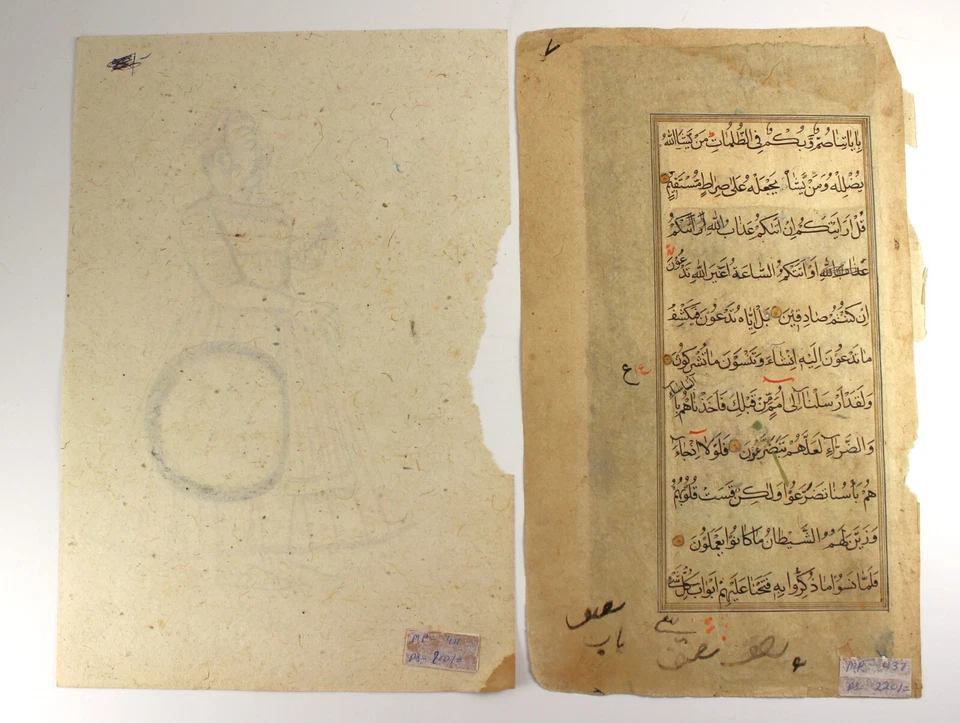 بِاٰيٰاتِنٰا صُمٌّ وَبُكْمٌ فِى الظُّلُمٰاتِ مَنْ يَشَاِ اللّٰهُ
يُضْلِلْهُ وَمَنْ يَشَأْ يَجْعَلْهُ عَلٰى صِرٰاطٍ مُسْتَقِيمٍ
قُلْ اَرَاَيْتَكُمْ اِنْ اَتٰيكُمْ عَذٰابُ اللّٰهِ اَوْ اَتَتْكُمُ
اللّٰهِ اَوْ اَتَتْكُمُ السّٰاعَةُ اَغَيْرَ اللّٰهِ تَدْعُونَ
اِنْ كُنْتُمْ صٰادِقِينَ بَلْ اِيّٰاهُ تَدْعُونَ فَيَكْشِفُ
مٰا تَدْعُونَ اِلَيْهِ اِنْ شٰاءَ وَتَنْسَوْنَ مٰا تُشْرِكُونَ
ع ع
وَلَقَدْ اَرْسَلْنٰا اِلٰى اُمَمٍ مِنْ قَبْلِكَ فَاَخَذْنٰاهُمْ بِالْبَأْسٰاءِ
وَالضَّرّٰاءِ لَعَلَّهُمْ يَتَضَرَّعُونَ فَلَوْلٰا اِذْ جٰاءَ
هُمْ بَأْسُنٰا تَضَرَّعُوا وَلٰكِنْ قَسَتْ قُلُوبُهُمْ
وَزَيَّنَ لَهُمُ الشَّيْطٰانُ مٰا كٰانُوا يَعْمَلُونَ
فَلَمّٰا نَسُوا مٰا ذُكِّرُوا بِهِ فَتَحْنٰا عَلَيْهِمْ اَبْوٰابَ كُلِّ شَىْءٍ
باب
MP- 437
RS- 220/=
RS- 200/=